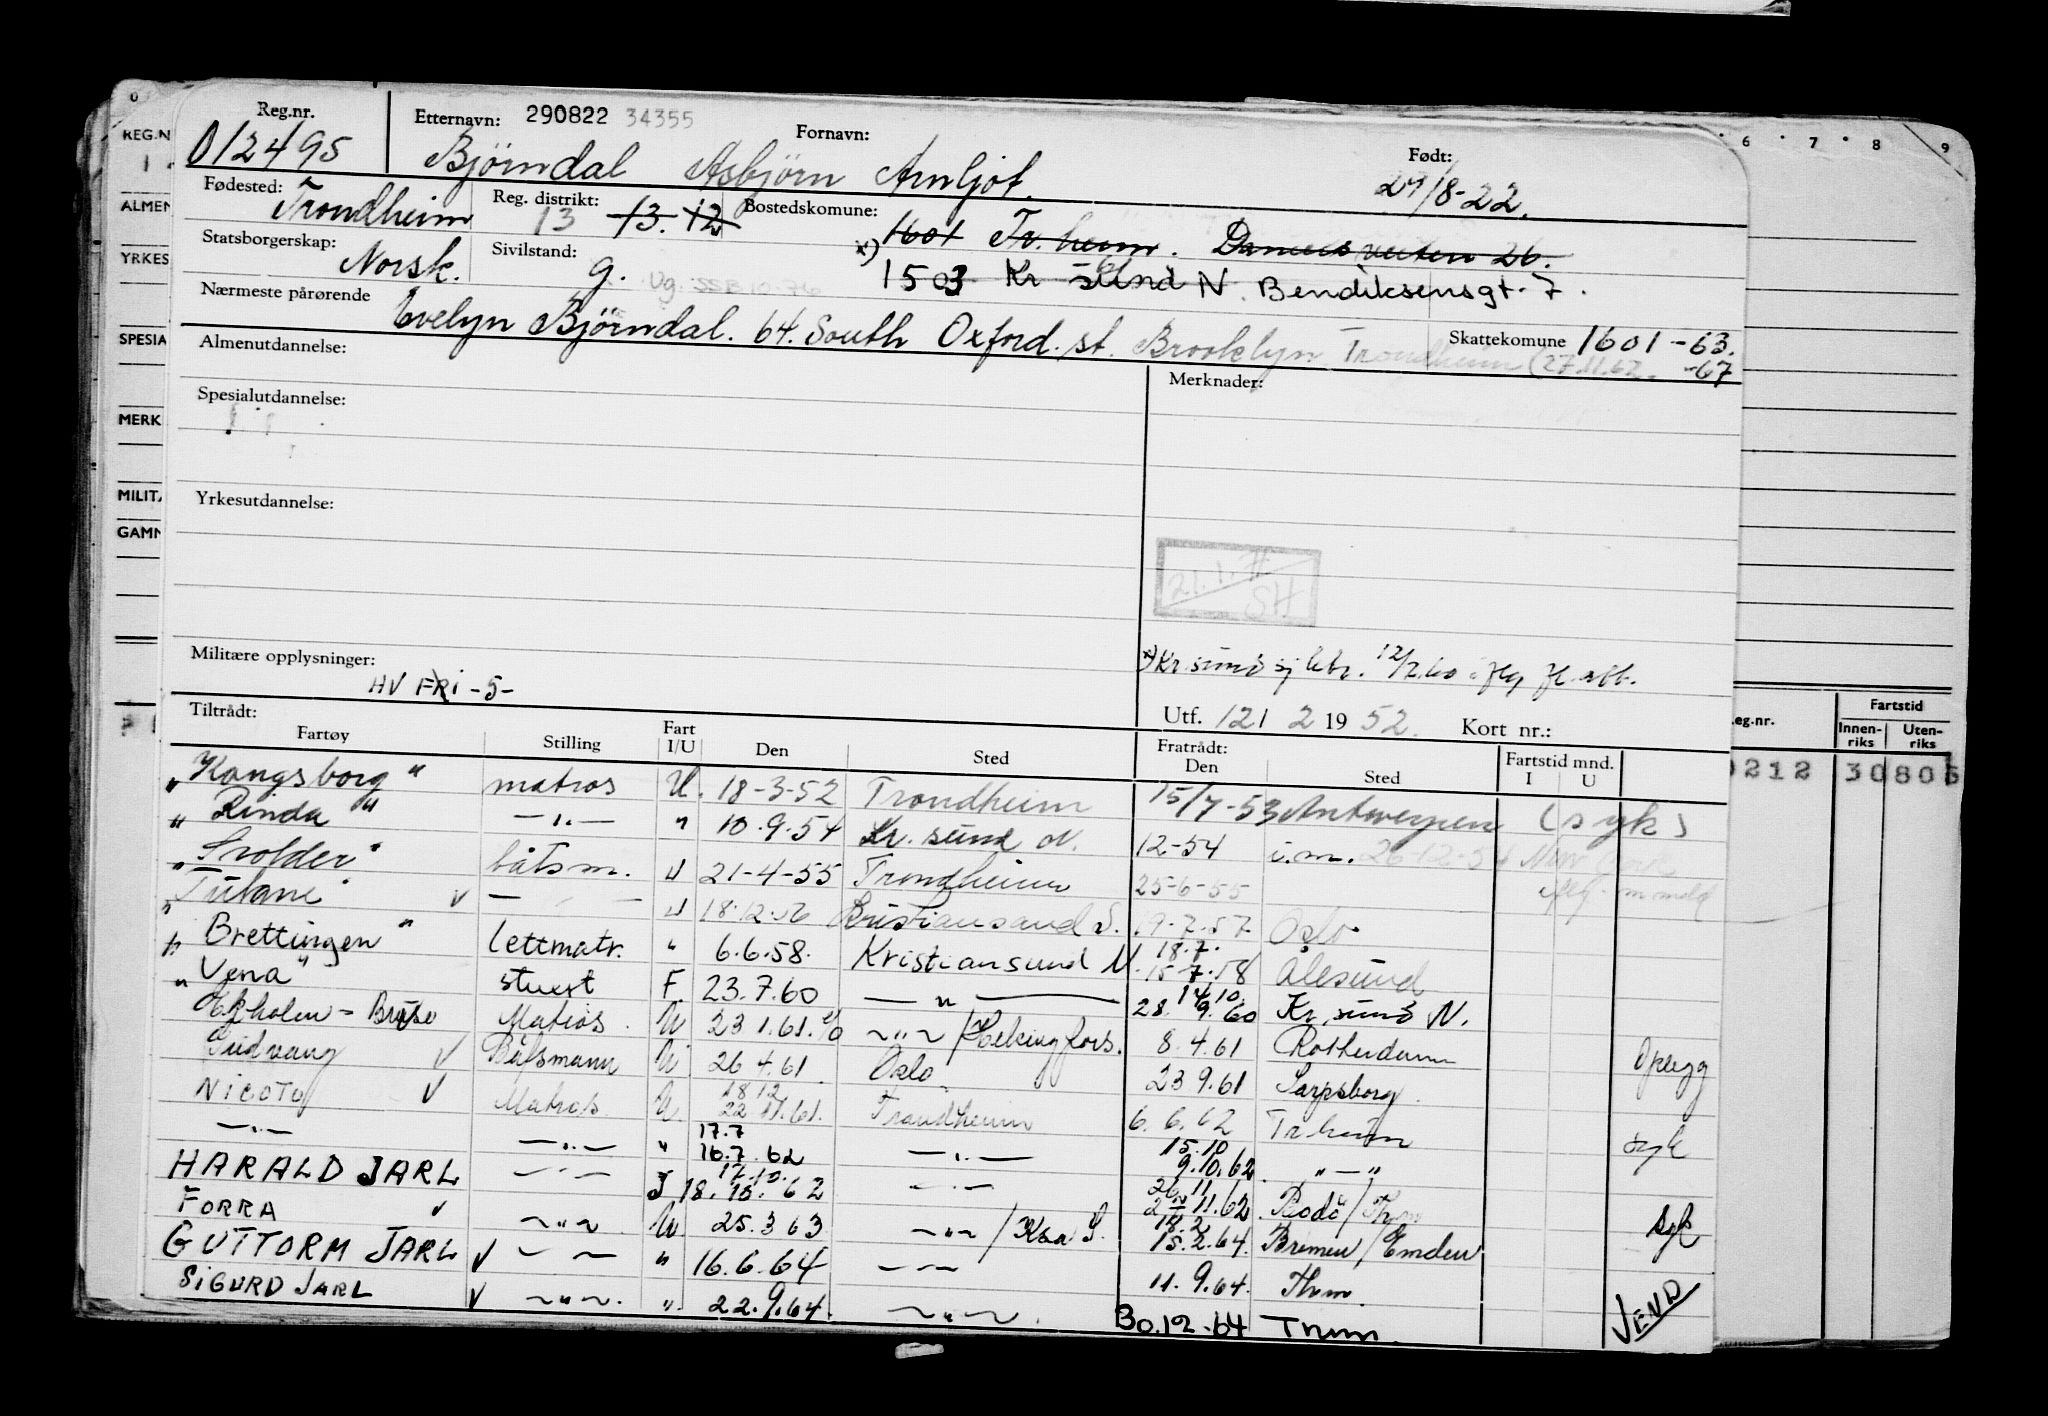 Reg.nr. Etternavn: 290822 34355 Fornavn: Født:
012495 Bjørndal Asbjørn Arnljot. 29/8-22.
Fødested: Trondheim Reg. distrikt: 13 13. 12 Bostedskomune: 1601 Tr.heim. 26.
Statsborgerskap: Norsk. Sivilstand: g. Ug. SSB 10.76 x) 1503 Kr sund N. Bendiksensgt. 7.
Nærmeste pårørende Evelyn Bjørndal. 64. South Oxford. st. Brooklyn Trondheim (27.11.62. Skattekomune 1601-63.
-67
Almenutdannelse: Merknader:
Spesialutdannelse:
Yrkesutdannelse:
21.1.71
SH
Militære opplysninger: HV FRI -5-
x) Kr.sund 12/2.60
Tiltrådt: Utf. 121 2 19 52. Kort nr.:
Fartøy Stilling Fart I/U Den Sted Fratrådt: Den Sted Fartstid mnd. I U
"Kongsborg" matros U. 18-3-52 Trondheim 15/7-53 Antwerpen (syk)
"Rinda" —"— " 10.9.54 Kr. sund N. 12-54 i.m. 26-12-54 New York
"Svolder" båtsm. U 21-4-55 Trondheim 25-6-55
"Tutane" v — — U 18.12.56 Kristiansand S. 19.7.57 Oslo
"Brettingen" lettmatr. " 6.6.58. Kristiansund N 18.7. 15-7.58 Ålesund
"Vena" stuert F 23.7.60 — " — 14.10. 28.9.60 Kr.sund N.
Matros U 23.1.61. —"— / Helsingfors. 8.4.61 Rotterdam
Sudvang v Båtsmann U 26.4.61 Oslo 23.9.61 Sarpsborg. Opplegg
NICOTO v Matros U. 18.12 22.11.61. Trondheim 6.6.62 Tr.heim
—"— —"— " 17.7 16.7.62 —"— 15.10 9.10.62 "—" syk
HARALD JARL —"— I 17.10. 18.10.62 —"— 26.11. 11.62 Bodö / Thm
FORRA v —"— U 25.3.63 —"— / Krs S. 18.2 15.2.64. Bremen / Emden syk
GUTTORM JARL v — — " 16.6.64 — — 11.9.64. Thm.
SIGURD JARL v —"—. " 22.9.64. —"—. 30.12-64 Thm. v END
0 REG.N 1
ALMEN
YRKES
SPESIA
MERK
MILITÆ
GAMM
6 7 8 9
eg.nr. Fartstid
Innen-riks Uten-riks
0212 30 805